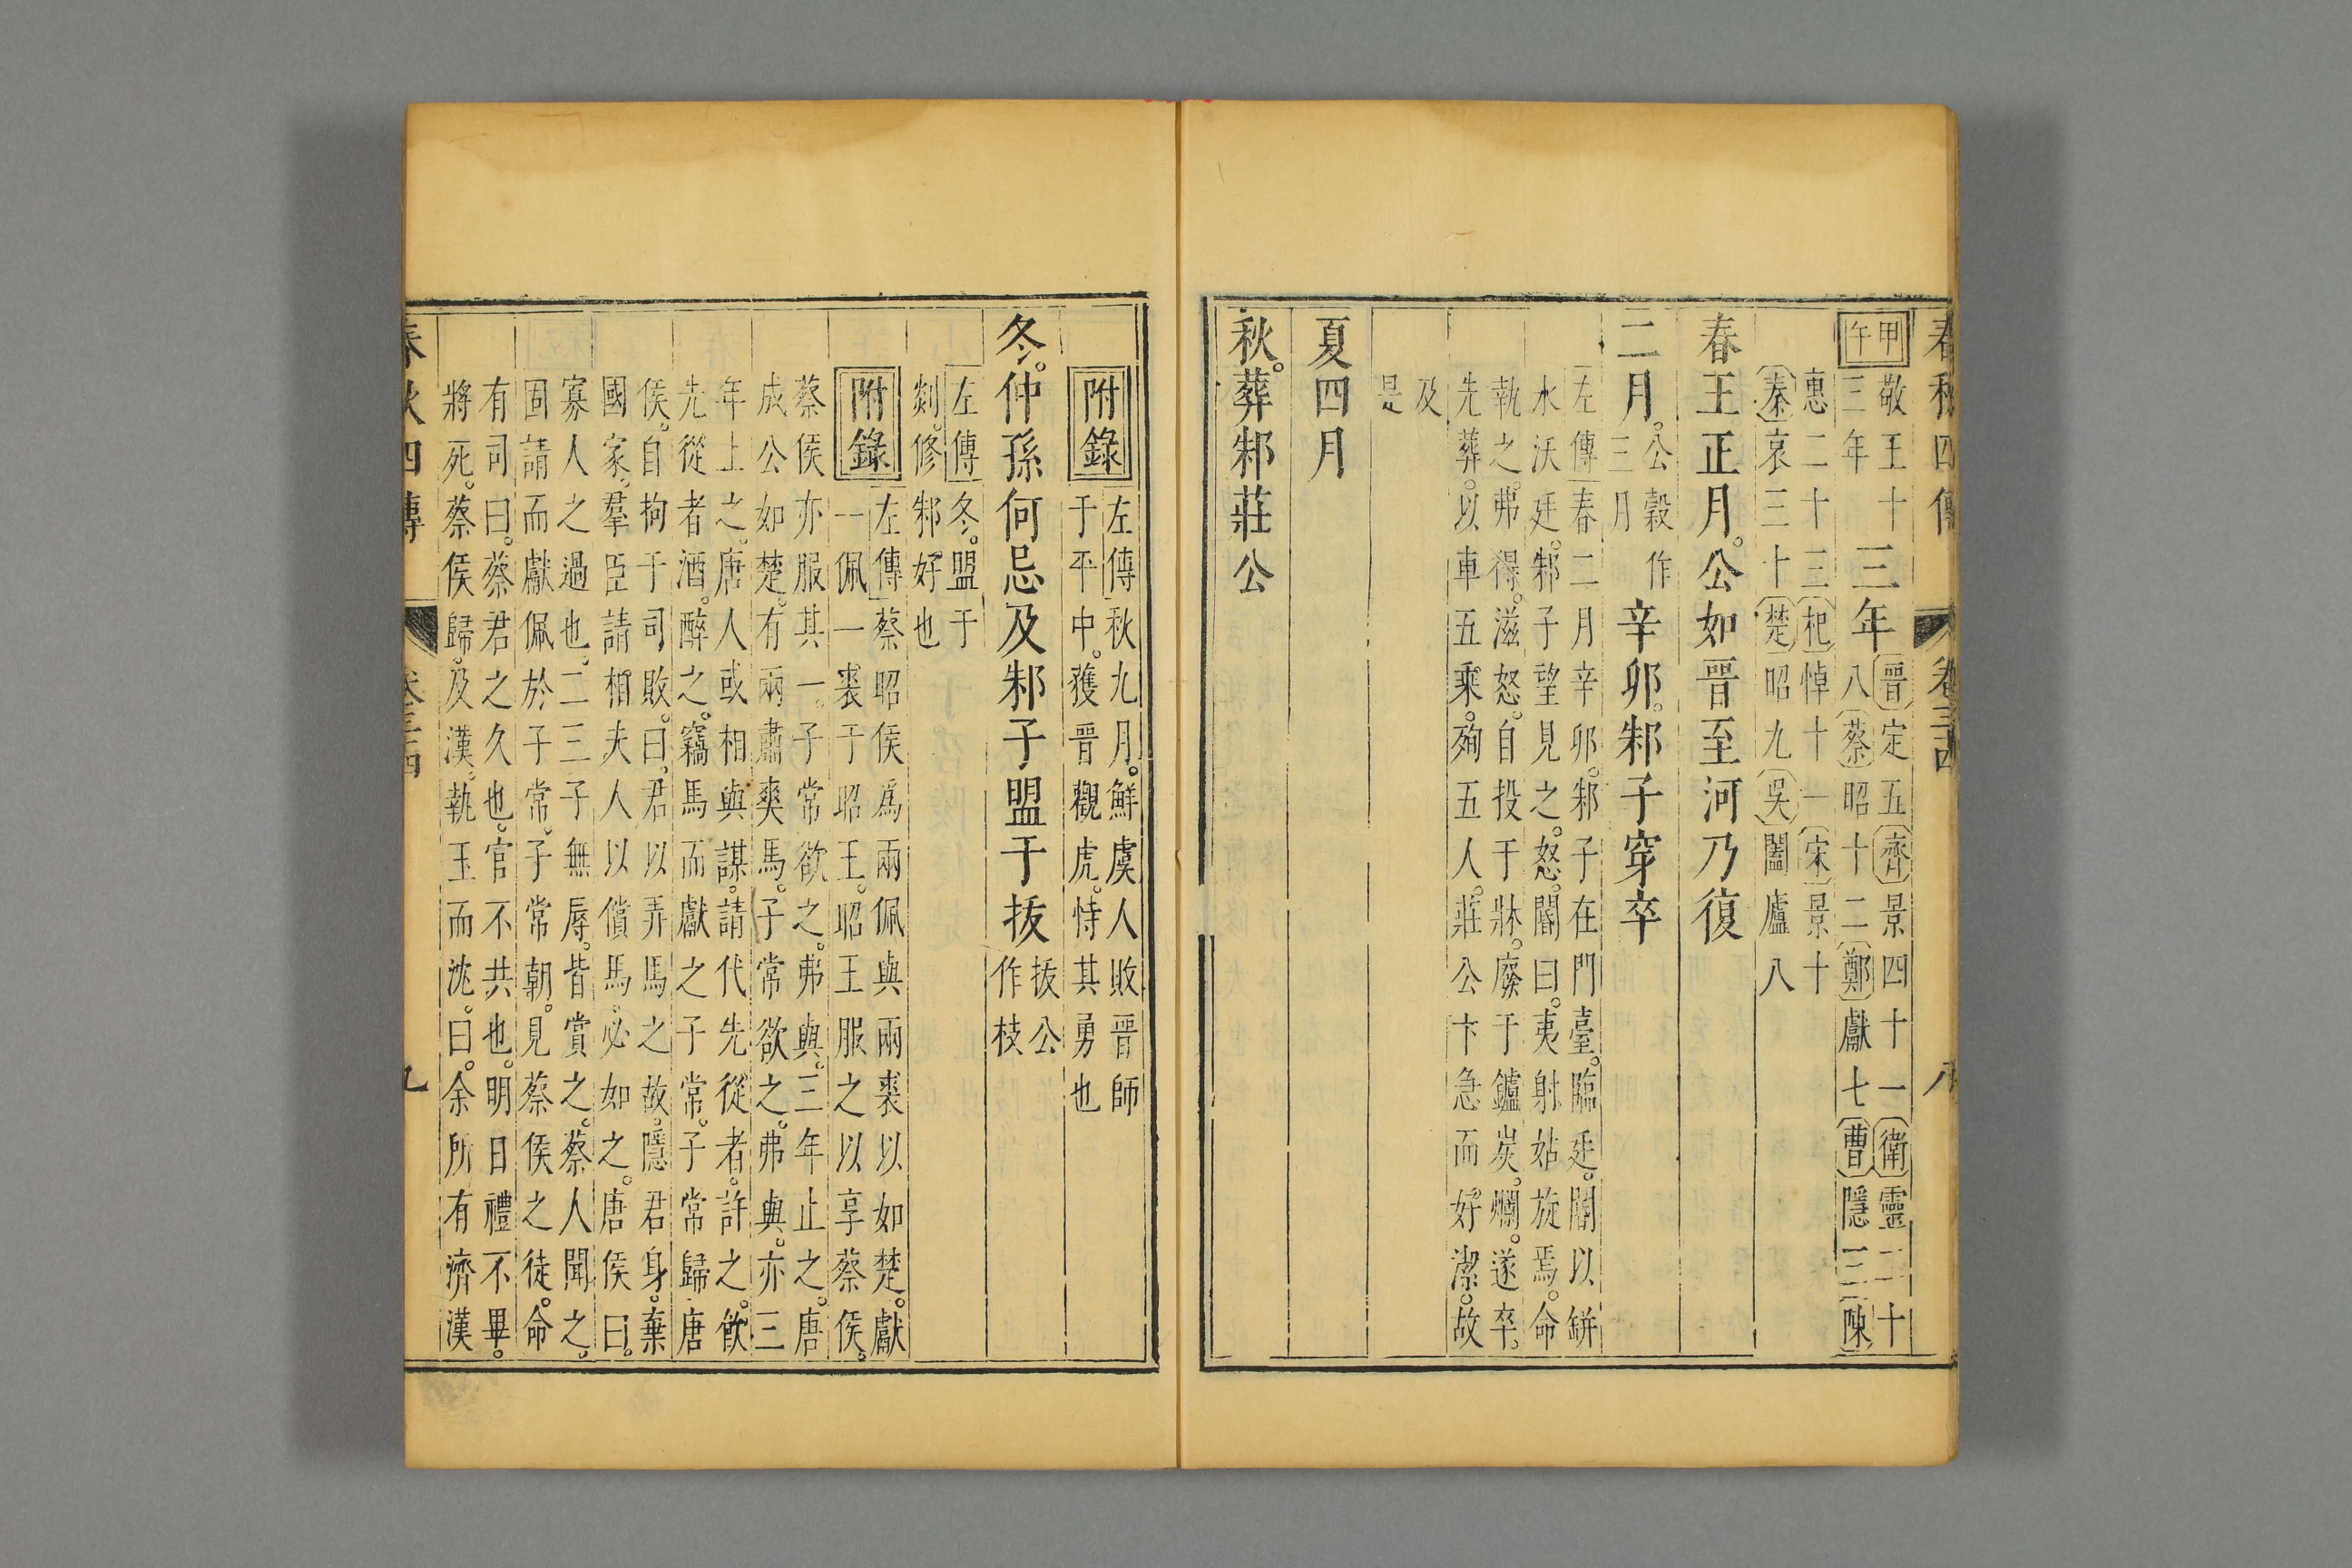 春秋四傳 卷三十四 八
甲午 敬王十三年 三年 晉定五齊景四十一衛靈二十
八蔡昭十二鄭獻七曹隱三陳
惠二十三杞悼十一宋景十
秦哀三十楚昭九吳闔廬八
春王正月。公如晉至河乃復
二月。公穀作三月辛卯。邾子穿卒
左傳春二月辛卯。邾子在門臺。臨廷。閽以缾
水沃廷。邾子望見之。怒。閽曰。夷射姑旋焉。命
執之。弗得。滋怒。自投于牀。廢于鑪炭。爛。遂卒。
先葬。以車五乘。殉五人。莊公卞急而好潔。故
及
是
夏四月
秋。葬邾莊公
附錄 左傳秋九月。鮮虞人敗晉師
于平中。獲晉觀虎。恃其勇也
冬。仲孫何忌及邾子盟于拔 拔公
作枝
左傳冬。盟于
郯。修邾好也
附錄 左傳蔡昭侯爲兩佩與兩裘以如楚。獻
一佩一裘于昭王。昭王服之以享蔡侯。
蔡侯亦服其一。子常欲之。弗與。三年止之。唐
成公如楚。有兩肅爽馬。子常欲之。弗與。亦三
年上之。唐人或相與謀。請代先從者。許之。飲
先從者酒。醉之。竊馬而獻之子常。子常歸唐
侯。自拘于司敗。曰。君以弄馬之故。隱君身。棄
國家。羣臣請相夫人以償馬。必如之。唐侯曰。
寡人之過也。二三子無辱。皆賞之。蔡人聞之。
固請而獻佩於子常。子常朝。見蔡侯之徒。命
有司曰。蔡君之久也。官不共也。明日禮不畢。
將死。蔡侯歸。及漢。執玉而沈。曰。余所有濟漢
春秋四傳 卷三十四 九